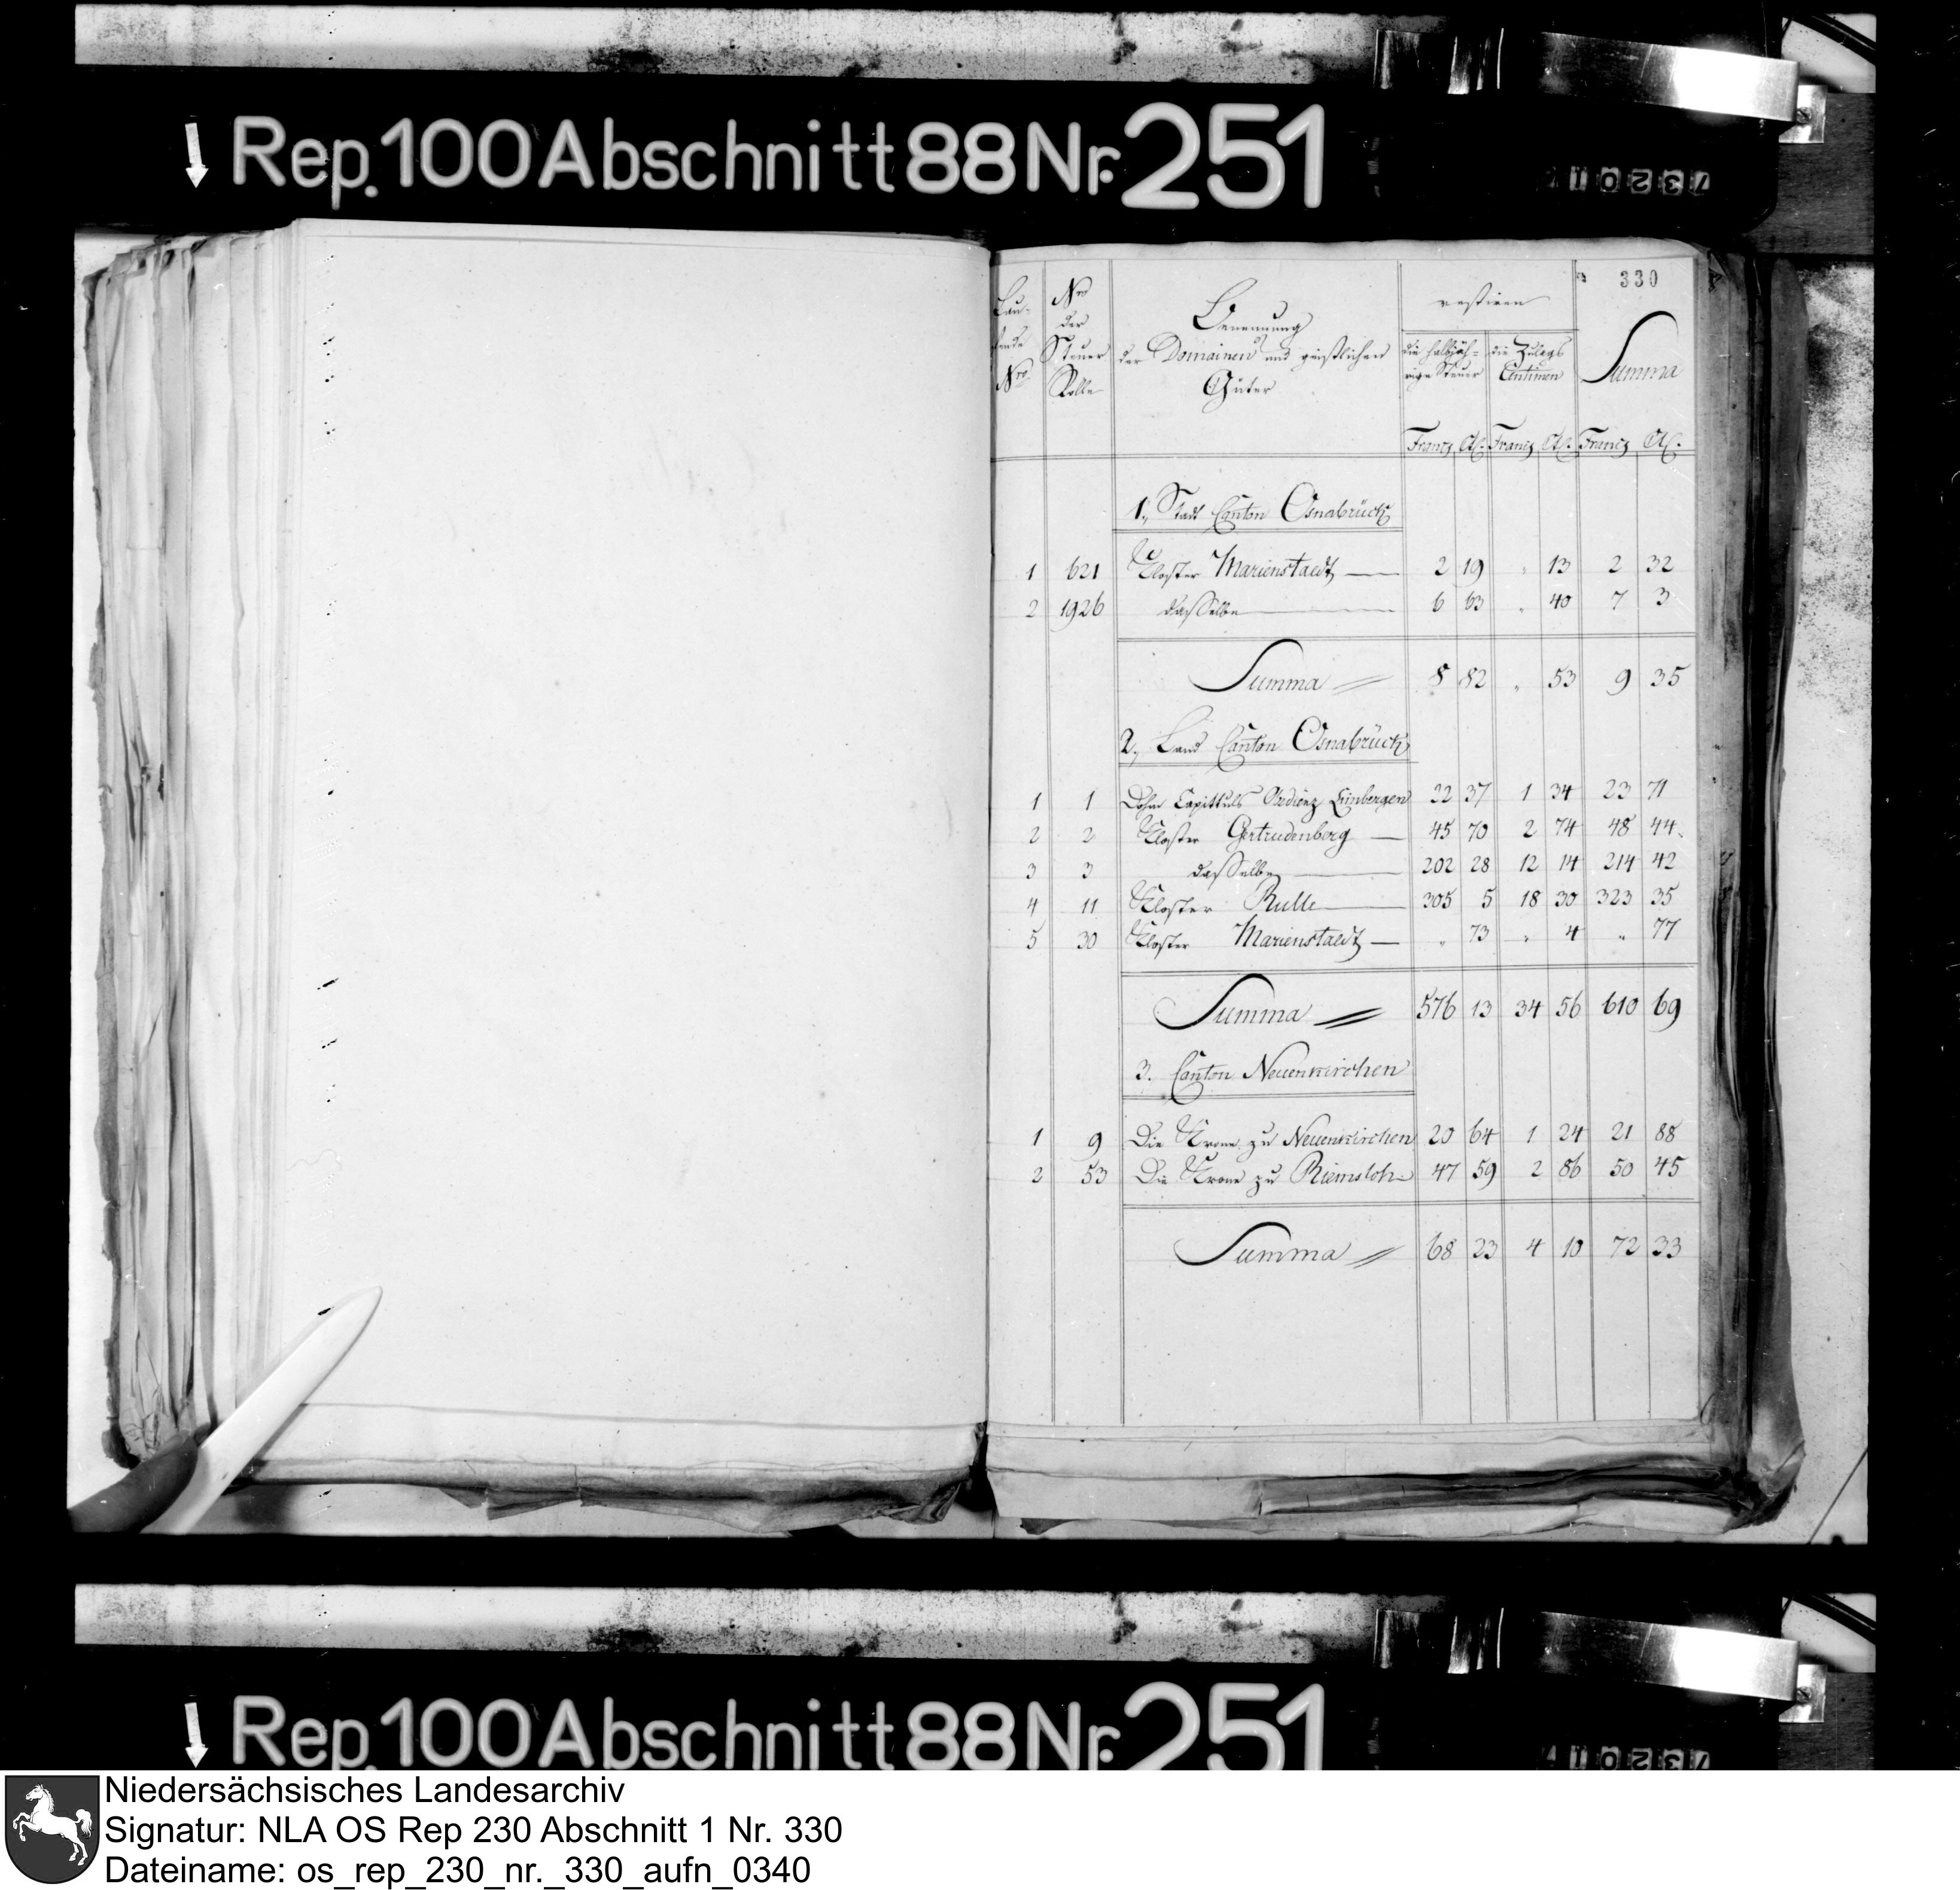 Rep. 100 Abschnitt 88 Nr. 251
73201
330
Laufende Nro
Nro der Steuer Rolle
Benennung der Domainen und geistlichen Güter
restiren
die halbjährige Steuer
die Zulags Centimen
Summa
Francs Ct. Francs Ct. Francs Ct.
1., Stadt Canton Osnabrück
1 621 Kloster Marienstaedt — 2 19 " 13 2 32
2 1926 dasselbe — 6 63 " 40 7 3
Summa 8 82 " 53 9 35
2., Land Canton Osnabrück
1 1 Dohm Capittuls Obedienz Limbergen 22 37 1 34 23 71
2 2 Kloster Gertrudenberg — 45 70 2 74 48 44
3 3 dasselbe — 202 28 12 14 214 42
4 11 Kloster Rulle — 305 5 18 30 323 35
5 30 Kloster Marienstaedt — " 73 " 4 " 77
Summa 576 13 34 56 610 69
3. Canton Neuenkirchen
1 9 Die Krone zu Neuenkirchen 20 64 1 24 21 88
2 53 Die Krone zu Riemsloh 47 59 2 86 50 45
Summa 68 23 4 10 72 33
Rep. 100 Abschnitt 88 Nr. 251
73201
Niedersächsisches Landesarchiv
Signatur: NLA OS Rep 230 Abschnitt 1 Nr. 330
Dateiname: os_rep_230_nr._330_aufn_0340